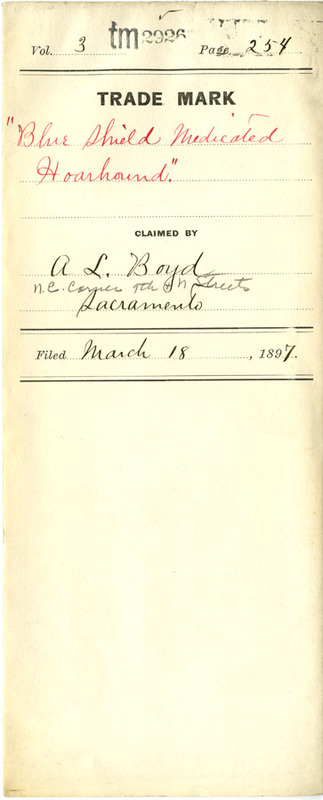 Vol. 3 tm 2926 Page 254
TRADE MARK
"Blue Shield Medicated
Hoarhound."
CLAIMED BY
A. L. Boyd
N.E. Corner 9th & N Streets
Sacramento
Filed March 18, 1897.